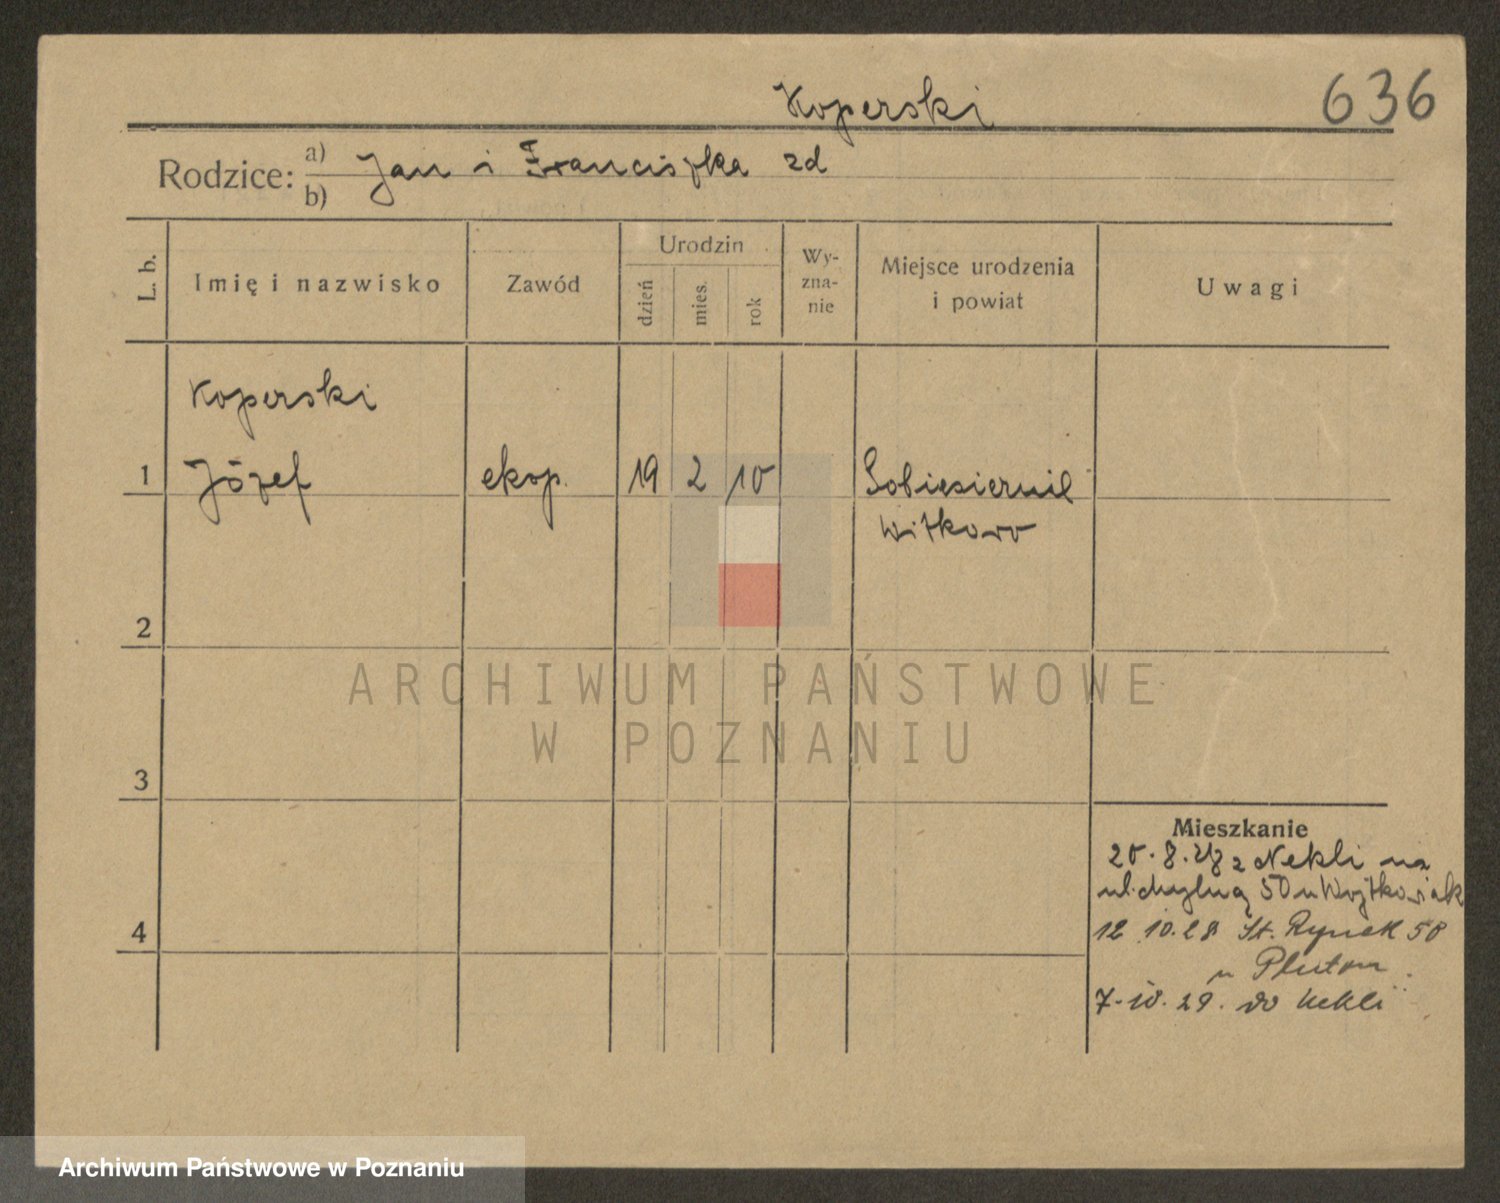 Koperski
636
Rodzice: a) Jan i Franciszka zd
b)
L. b.
Imię i nazwisko
Zawód
Urodzin
dzień
mies.
rok
Wy-
zna-
nie
Miejsce urodzenia
i powiat
Uwagi
Koperski
1 Józef eksp. 19 2 10 Sobiesiernie
Witkowo
2
3
4
Mieszkanie
20.8.28 z Nekli na
ul. chylną 50 u Wojtkowiak
12 10.28 St. Rynek 58
u Pluton
7-10.29. do Nekli
ARCHIWUM PAŃSTWOWE
W POZNANIU
Archiwum Państwowe w Poznaniu